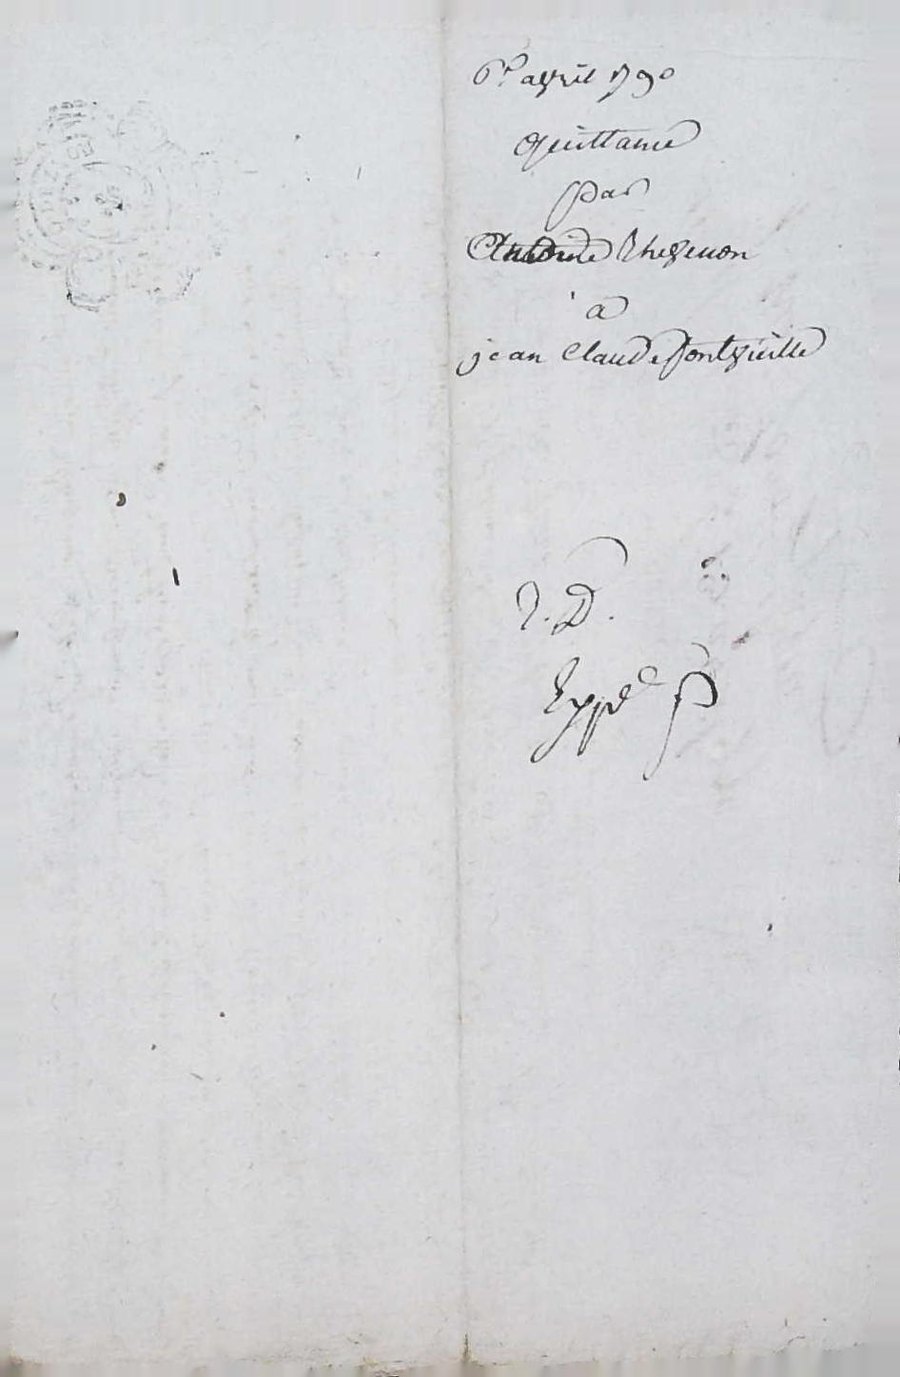 6e avril 1790
Quittance
par
Antoine Thevenon
a
jean Claude fontvieille
J. D.
Exp